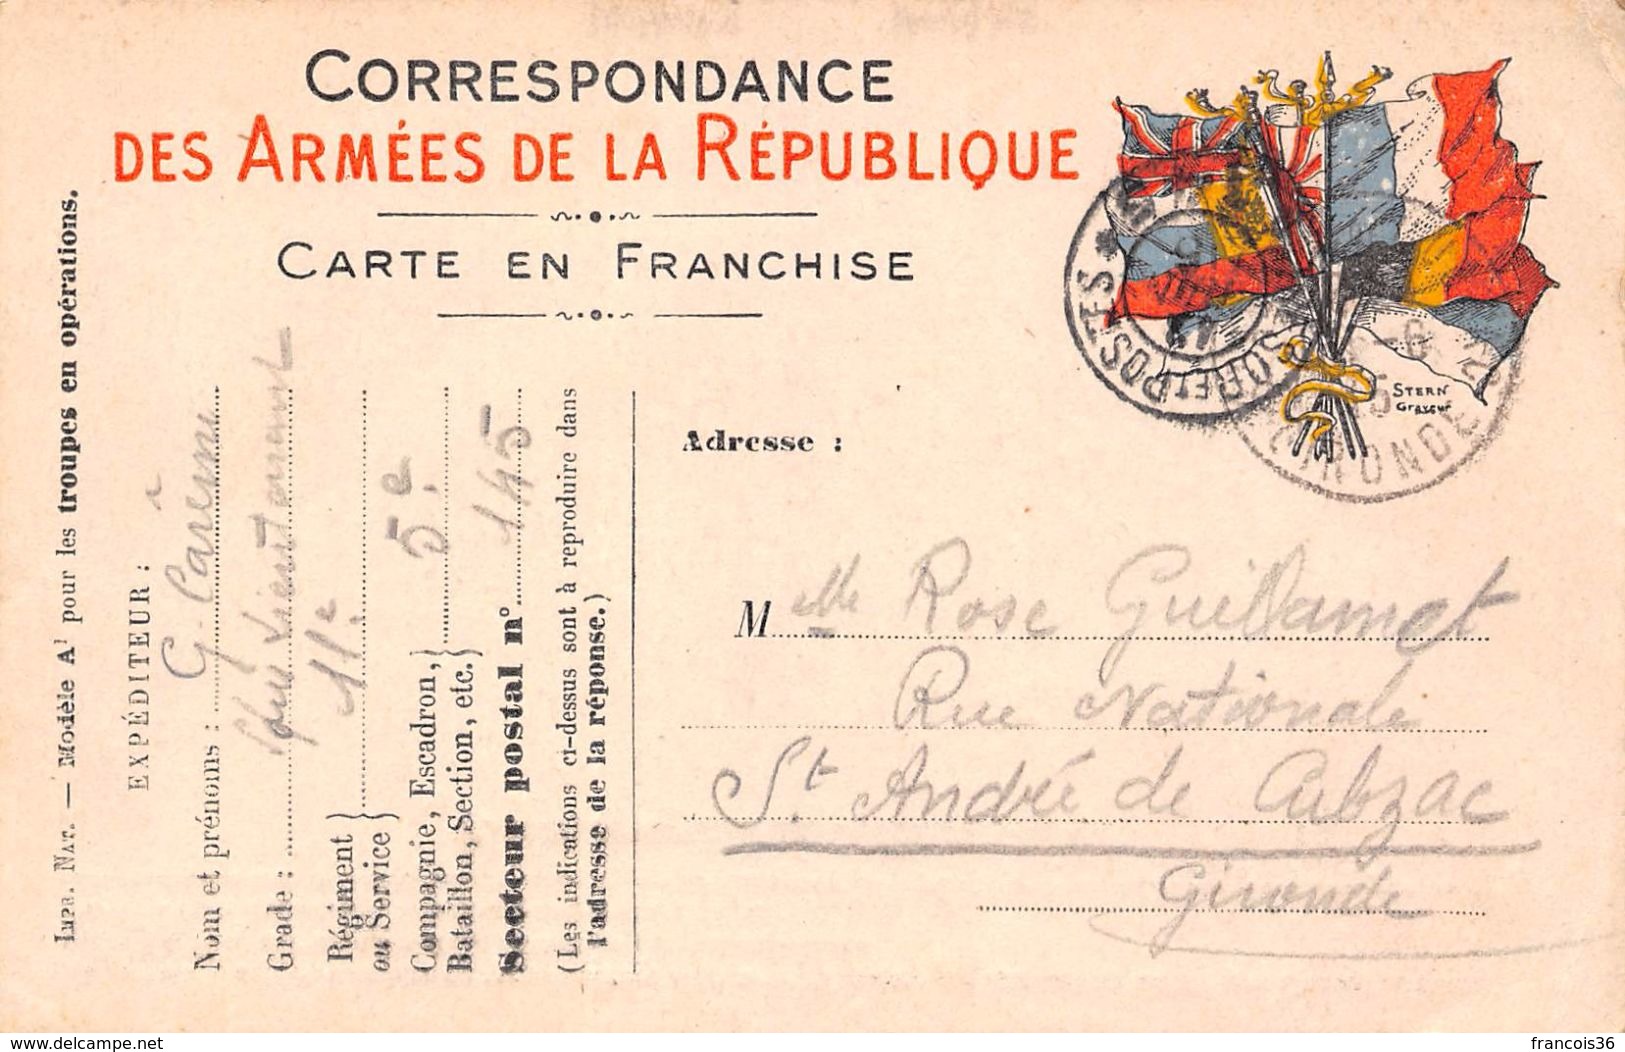 CORRESPONDANCE
DES ARMÉES DE LA RÉPUBLIQUE
CARTE EN FRANCHISE
IMPR. NAT. — Modèle A¹ pour les troupes en opérations.
EXPÉDITEUR :
Nom et prénoms : G. Carême
Grade : Sous Lieutenant
Régiment ou Service } 11e.
Compagnie, Escadron, Bataillon, Section, etc. } 5e.
Secteur postal n° 145
(Les indications ci-dessus sont à reproduire dans
l'adresse de la réponse.)
TRÉSOR ET POSTES *
GIRONDE
STERN
Graveur
Adresse :
Melle Rose Guillamet
Rue Nationale
St André de Cubzac
Gironde
www.delcampe.net
francois36